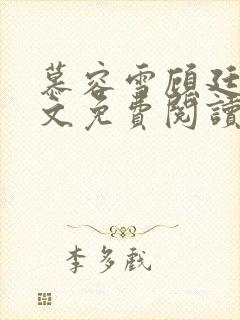 慕容雪顧廷
文免費閱讀
李多戲